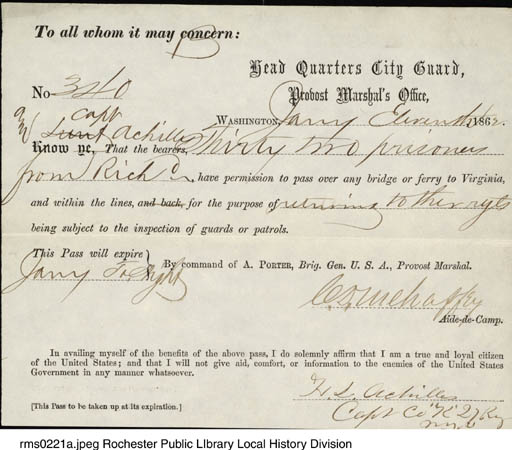 To all whom it may concern:
Head Quarters City Guard,
Provost Marshal's Office,
No 340
Washington, Jany Eleventh 1862.
Capt
Lieut Achilles
Know ye, That the bearers, Thirty two prisoners
from Rich have permission to pass over any bridge or ferry to Virginia,
and within the lines, and back, for the purpose of returning to their regts
being subject to the inspection of guards or patrols.
This Pass will expire
Jany To Night
By command of A. PORTER, Brig. Gen. U. S. A., Provost Marshal.
Aide-de-Camp.
In availing myself of the benefits of the above pass, I do solemnly affirm that I am a true and loyal citizen
of the United States; and that I will not give aid, comfort, or information to the enemies of the United States
Government in any manner whatsoever.
H. S. Achilles
Capt Co "K" 27 Reg
[This Pass to be taken up at its expiration.]
rms0221a.jpeg Rochester Public Library Local History Division